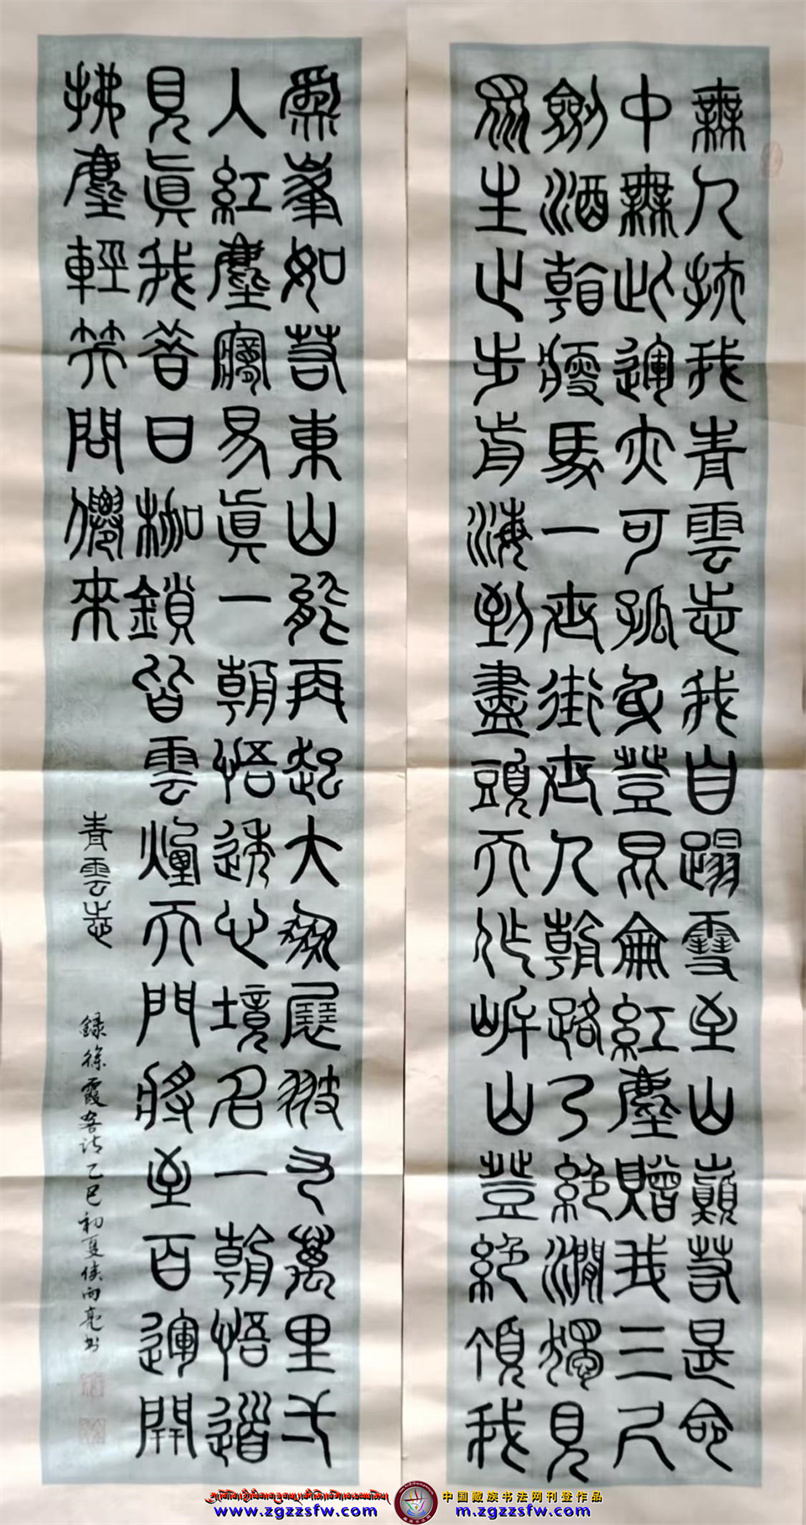 無人扶我青雲志我自踏雪至山巔若是命
中無此運亦可孤身登昆侖紅塵贈我三尺
劍酒朝瘦馬一世街世人朝路了絕澗獨見
眾生止步前海到盡頭天作岸山登絕頂我
爲峯如若東山能再起大鵬展翅九萬里千
人紅塵夢易眞一朝悟透心境名一朝悟道
見眞我昔日枷鎖皆雲煙天門將至百運開
拂塵輕笑問僊來
青雲志
錄徐霞客詩乙巳初夏侯雨亮書
www.zgzzsfw.com
中国藏族书法网刊登作品
m.zgzzsfw.com